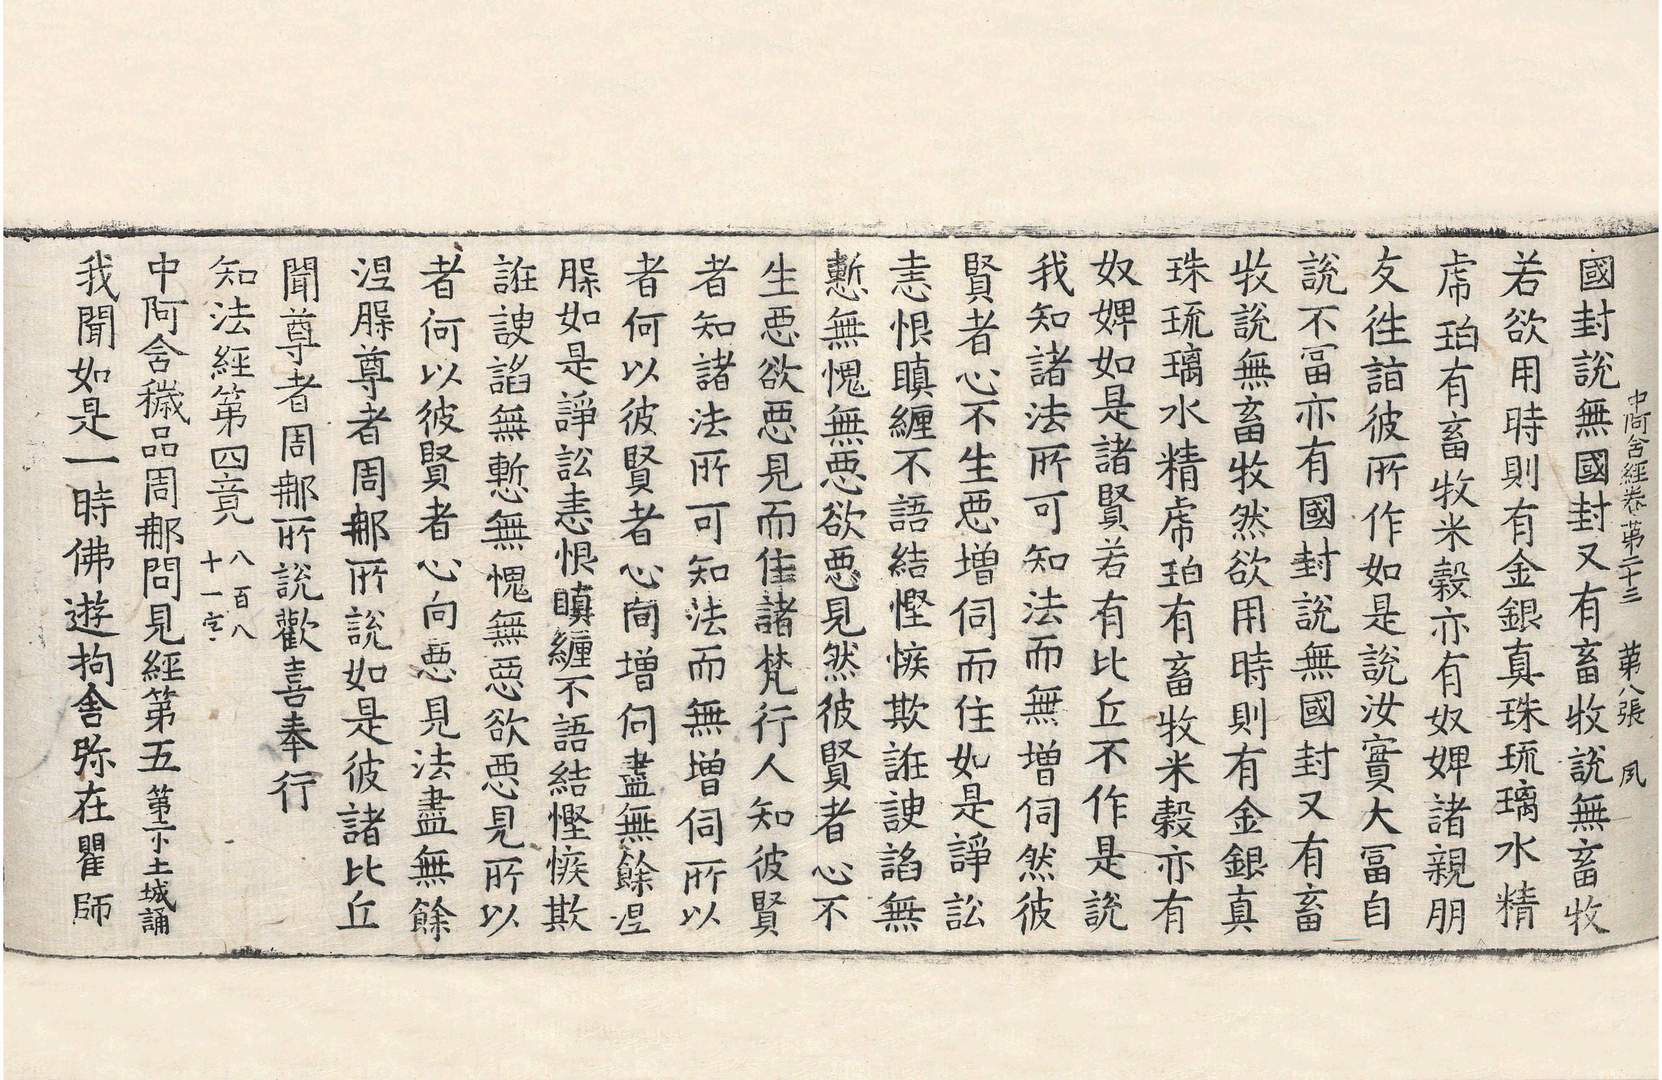 中阿含經卷第二十三　第八張　夙
國封說無國封又有畜牧說無畜牧
若欲用時則有金銀真珠琉璃水精
虎珀有畜牧米穀亦有奴婢諸親朋
友往詣彼所作如是說汝實大冨自
說不冨亦有國封說無國封又有畜
牧說無畜牧然欲用時則有金銀真
珠琉璃水精虎珀有畜牧米穀亦有
奴婢如是諸賢若有比丘不作是說
我知諸法所可知法而無增伺然彼
賢者心不生惡增伺而住如是諍訟
恚恨瞋纏不語結慳嫉欺誑諛諂無
慙無愧無惡欲惡見然彼賢者心不
生惡欲惡見而住諸梵行人知彼賢
者知諸法所可知法而無增伺所以
者何以彼賢者心向增伺盡無餘涅
槃如是諍訟恚恨瞋纏不語結慳嫉欺
誑諛諂無慙無愧無惡欲惡見所以
者何以彼賢者心向惡見法盡無餘
涅槃尊者周那所說如是彼諸比丘
聞尊者周那所說歡喜奉行
知法經第四竟　八百八十一字
中阿含穢品周那問見經第五　第二小土城誦
我聞如是一時佛遊拘舍弥在瞿師